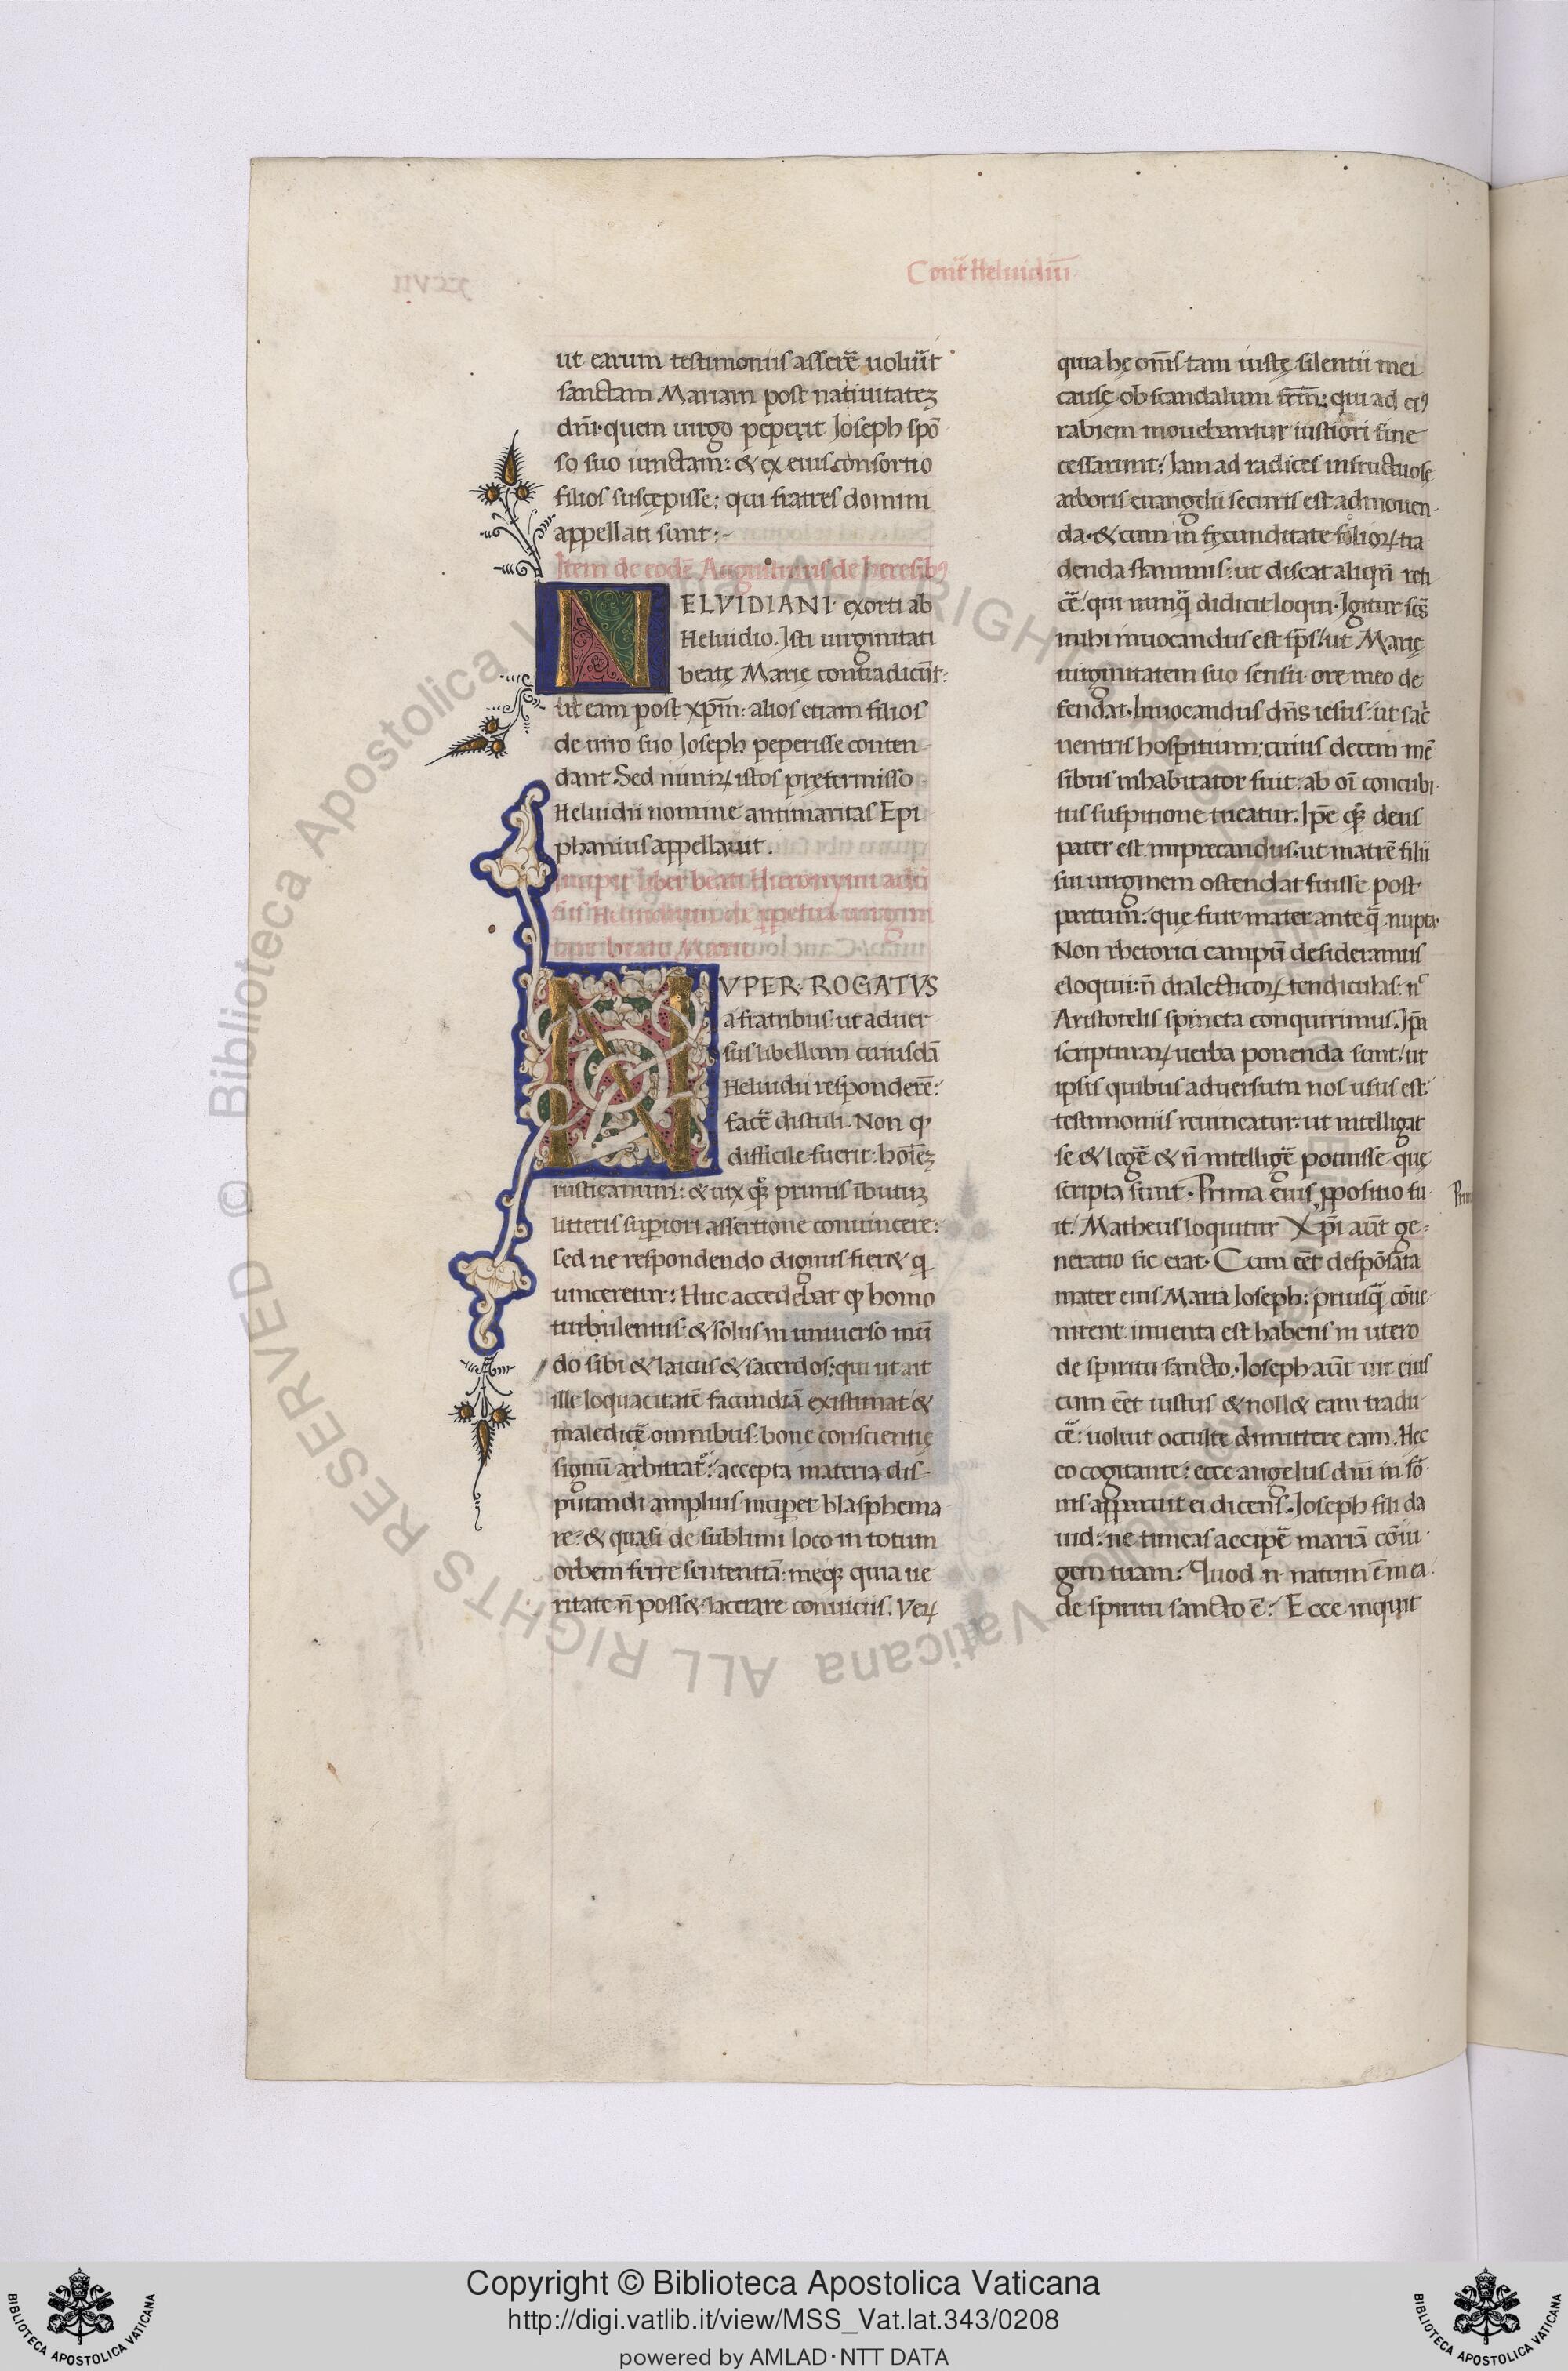 Cont̃ Heluidiũ
ut earum testimoniis asserẽ uolũt
sanctam Mariam post natiuitateʒ
dñi· quem uirgo peperit Joseph spõ
so suo iunctam: & ex eius consortio
filios suscepisse: qui fratres domini
appellati sunt:-
Item de eodẽ Augustinus de heresibꝰ
ELVIDIANI· exorti ab
Heluidio. Isti uirginitati
beatę Marię contradicũt:
ut eam post xp̃m: alios etiam filios
de uiro suo Joseph peperisse conten
dant. Sed miniꝝ istos pretermisso
Heluidii nomine antimaritas Epi
phanius appellauit.
VPER· ROGATVS
a fratribus: ut aduer
sus libellum cuiusdã
Heluidii responderẽ:
facẽ distuli. Non ꝙ
difficile fuerit: hoĩeʒ
rusticanum: & uix qꝫ primis ĩbutuʒ
litteris superiori assertione conuincere:
sed ne respondendo dignus fier& q̃
uinceretur: Huc accedebat ꝙ homo
turbulentus: & solus in uniuerso mũ
do sibi & laicus & sacerdos: qui ut ait
ille loquacitatẽ facundiã existimat &
maledicẽ omnibus: bonę conscientię
signũ arbitrat̃: accepta materia dis-
putandi amplius inciperet blasphema
re: & quasi de sublimi loco in totum
orbem ferre sententiã: meqꝫ quia ue
ritate ñ poss& lacerare conuiciis. Veꝝ
quia hę om̃s tam iustę silentii mei
causę ob scandalum frm̃: qui ad eiꝰ
rabiem mouebantur iustiori fine
cessarunt: Jam ad radices infructuosę
arboris euangelii securis est admouen
da· & cum in fęcunditate folioꝝ tra
denda flammis: ut discat aliqñ reti
cẽ: qui nunq̃ didicit loqui· Igitur sc̃s
mihi inuocandus est sp̃s: ut Marię
uirginitatem suo sensu ore meo de
fendat· Inuocandus dñs iesus: ut sac̃
uentris hospitium: cuius decem mẽ
sibus inhabitator fuit: ab oĩ concubi
tus suspitione tueatur. Ip̃e qꝫ deus
pater est imprecandus: ut matrẽ filii
sui uirginem ostendat fuisse post
partum: quę fuit mater ante q̃ nupta·
Non rhetorici campũ desideramus
eloquii: ñ dialecticoꝝ tendiculas: nͨ
Aristotelis spineta conquirimus. Ip̃a
scripturaꝝ uerba ponenda sunt: ut
ipsis quibus aduersum nos usus est
testimoniis reuincatur: ut intelligat
se & legẽ & ñ intelligẽ potuisse quę
scripta sunt· Prima eius ꝓpositio fu
it: Matheus loquitur Xp̃i aũt ge-
neratio sic erat· Cum eẽt despõsata
mater eius Maria Joseph: priusq̃ cõue
nirent inuenta est habens in utero
de spiritu sancto· Joseph aũt uir eius
cum eẽt iustus & noll& eam tradu
cẽ: uoluit occulte dimittere eam. Hec
eo cogitante: ecce angelus dñi in sõ
nis apparuit ei dicens. Joseph fili da
uid: ne timeas accipẽ mariã cõiu
gem tuam: Quod .n. natum ẽ in ea
de spiritu sancto ẽ: Ecce inquit
© Biblioteca Apostolica Vaticana ALL RIGHTS RESERVED
Copyright © Biblioteca Apostolica Vaticana
http://digi.vatlib.it/view/MSS_Vat.lat.343/0208
powered by AMLAD·NTT DATA
BIBLIOTECA APOSTOLICA VATICANA
BIBLIOTECA APOSTOLICA VATICANA